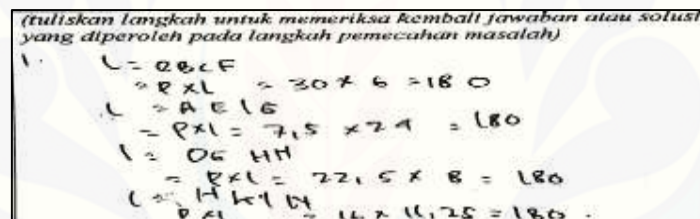 (tuliskan langkah untuk memeriksa kembali jawaban atau solusi
yang diperoleh pada langkah pemecahan masalah)
1. L = QBCF
= P x L = 30 x 6 = 180
L = A E I G
= P x L = 7,5 x 24 = 180
L = HH
= P x L = 22,5 x 8 = 180
L =
P x L = 16 x 11,25 = 180.